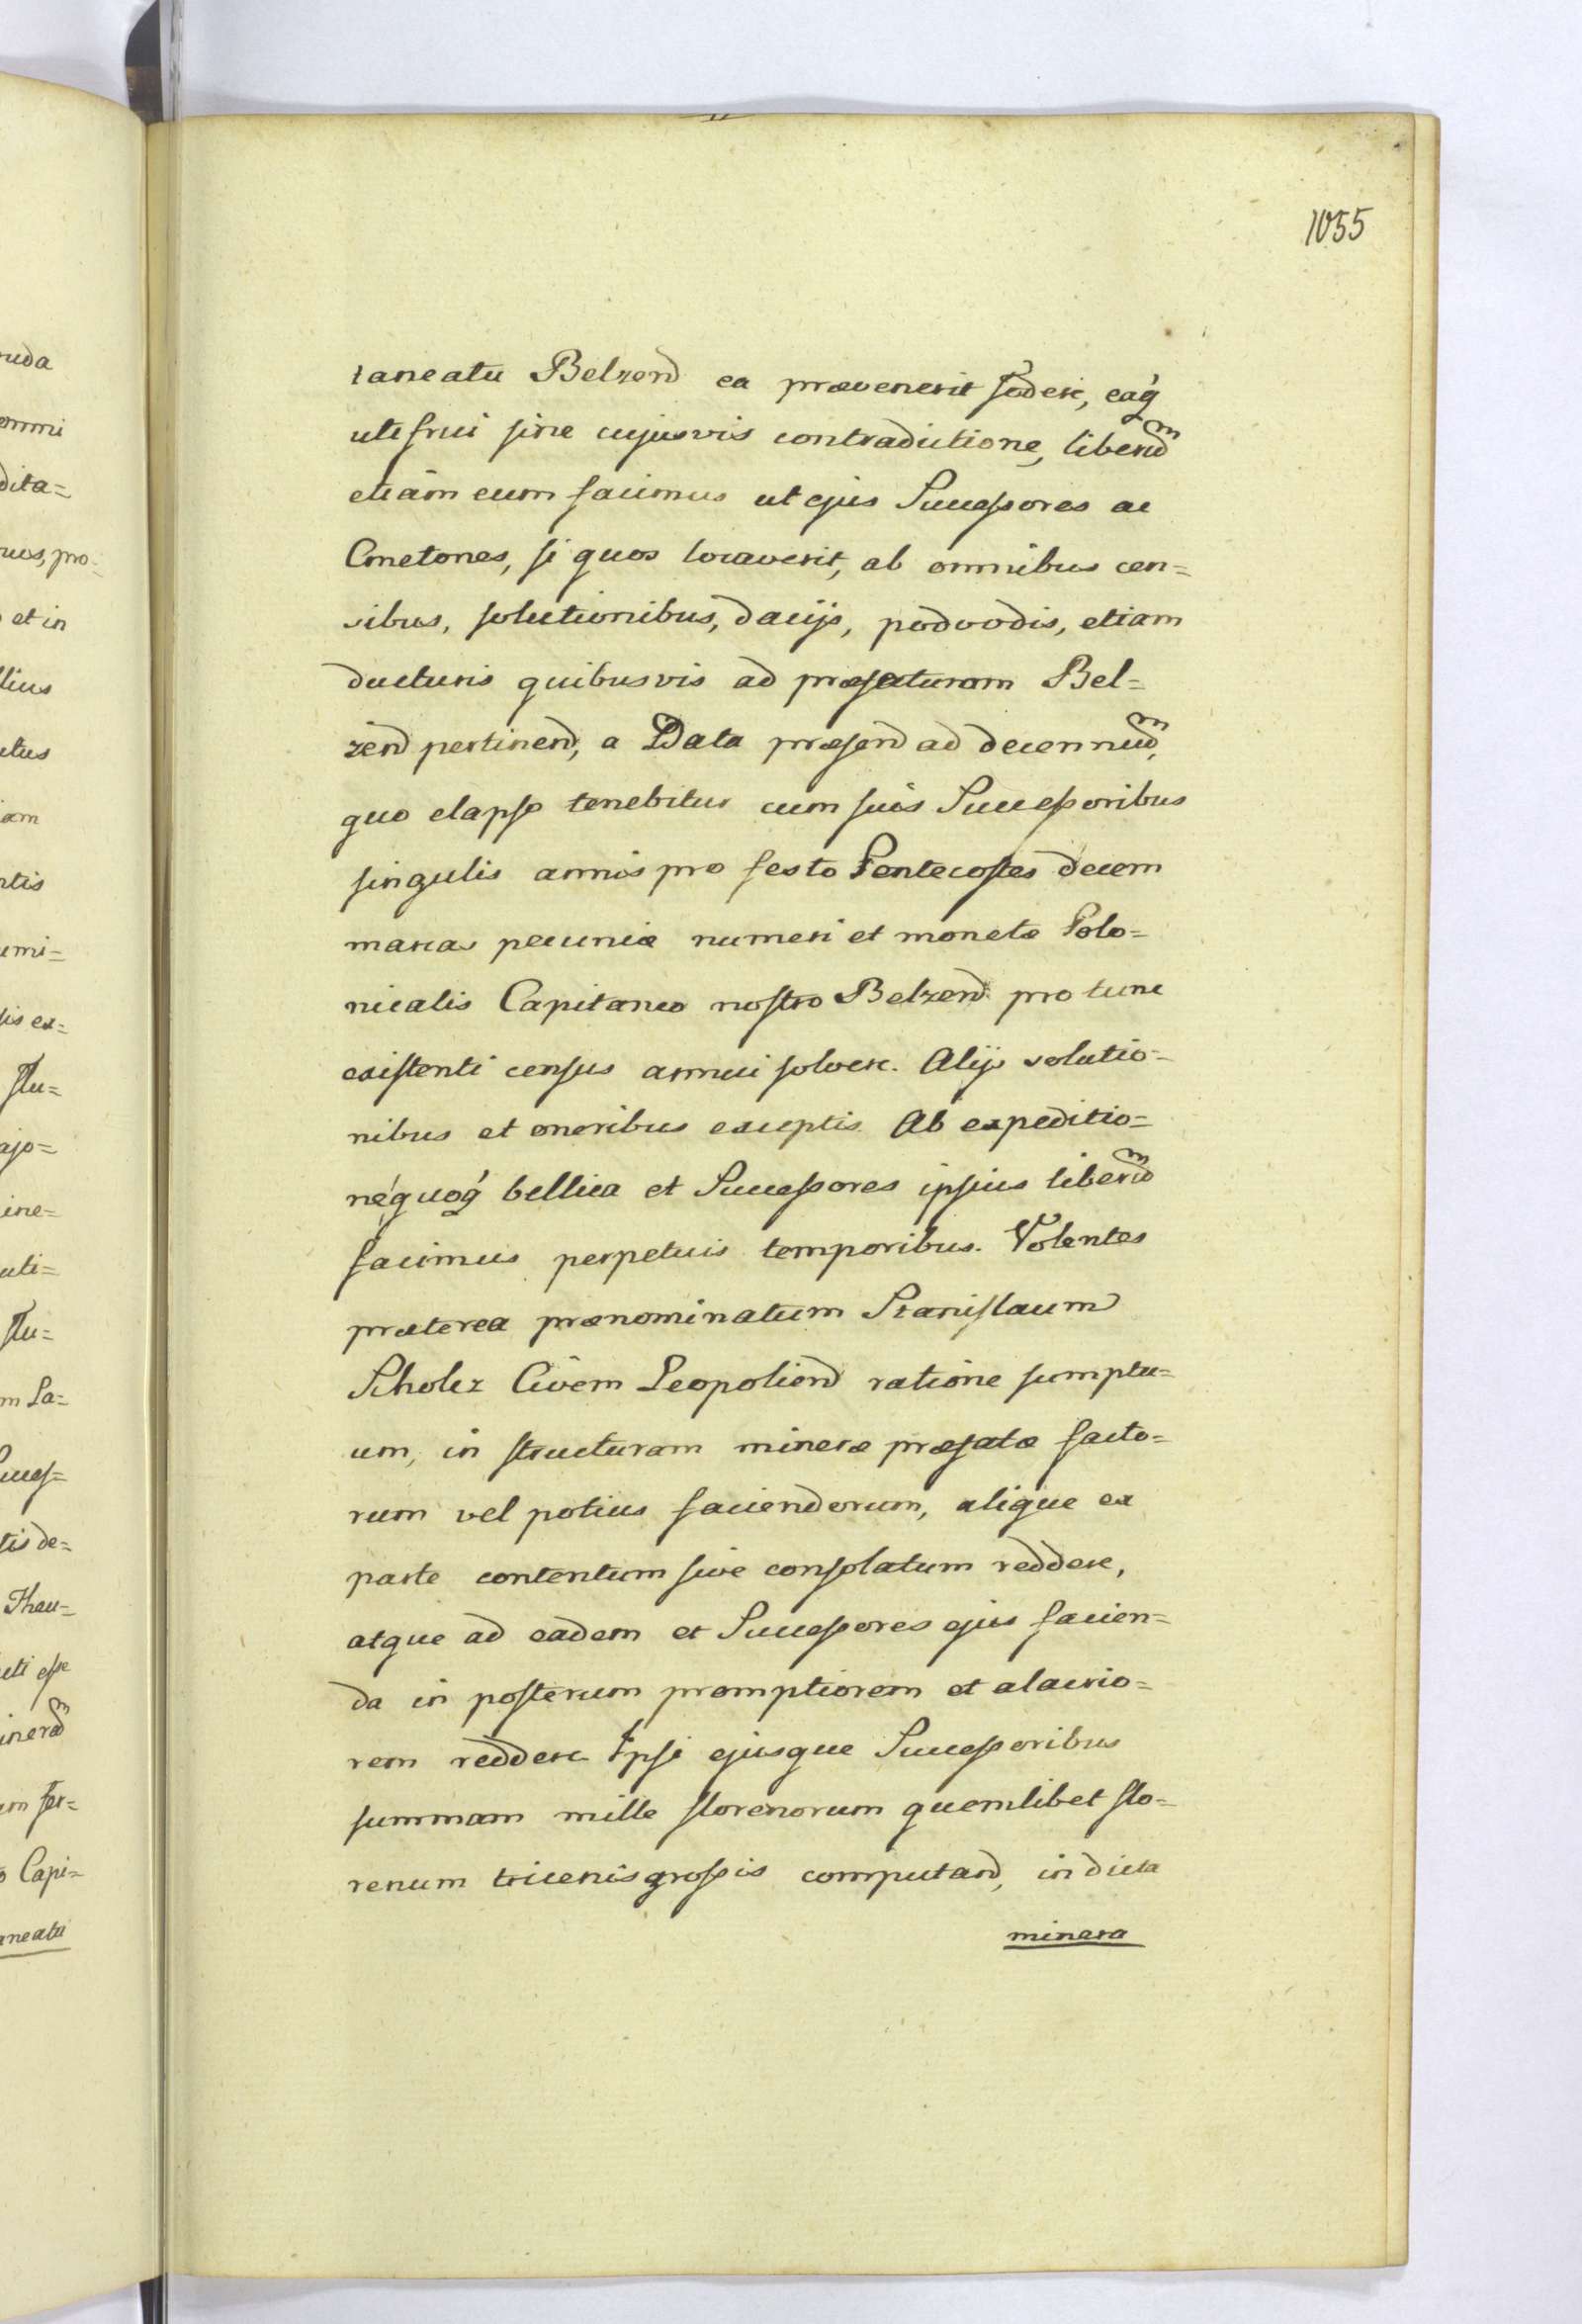 1055
taneatu Belzen̄ ea prævenerit fodere, eaq́
uti frui sine cujusvis contradictione, liberum
etiam eum facimus ut ejus Successores ac
Cmetones, si quos locaverit, ab omnibus cen=
sibus, solutionibus, dacijs, podvodis, etiam
ducturis quibusvis ad præfecturam Bel=
zen̄ pertinen̄, a Data præsen̄ ad decennium,
quo elapso tenebitur cum suis Successoribus
singulis annis pro festo Pentecostes decem
marcas pecuniæ numeri et monetæ Polo=
nicalis Capitaneo nostro Belzen̄ pro tunc
existenti census annui solvere. Alijs solutio=
nibus et oneribus exceptis. Ab expeditio=
ne quoq́ bellica et Successores ipsius liberum
facimus perpetuis temporibus. Volentes
præterea prænominatum Stanislaum
Scholcz Civem Leopolien̄ ratione sumptu=
um, in structuram mineræ præfatæ facto=
rum vel potius faciendorum, aliqua ex
parte contentum sive consolatum reddere,
atque ad eadem et Successores ejus facien=
da in posterum promptiorem et alacrio=
rem reddere Ipsi ejusque Successoribus
summam mille florenorum quemlibet flo=
renum tricenis grossis computan̄, in dicta
minera
uda
ommi
dita=
uos, pro=
et in
llius
itus
iam
ntis
umi=
is ex=
flu=
ajo=
ine=
uti=
flu=
m La=
Succes=
tis de=
Thau=
uti esse
ineram
um fer=
o Capi=
aneatu